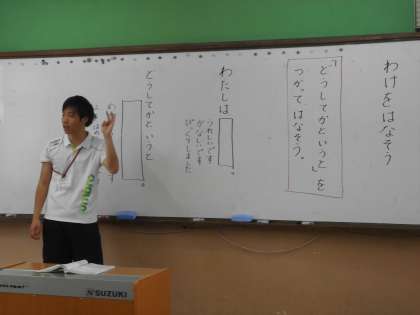 わけをはなそう
「どうしてかというと」を
つかってはなそう。
わたしは
。
うれしいです
かなしいです
びっくりしました
どうしてかというと
。
SUZUKI